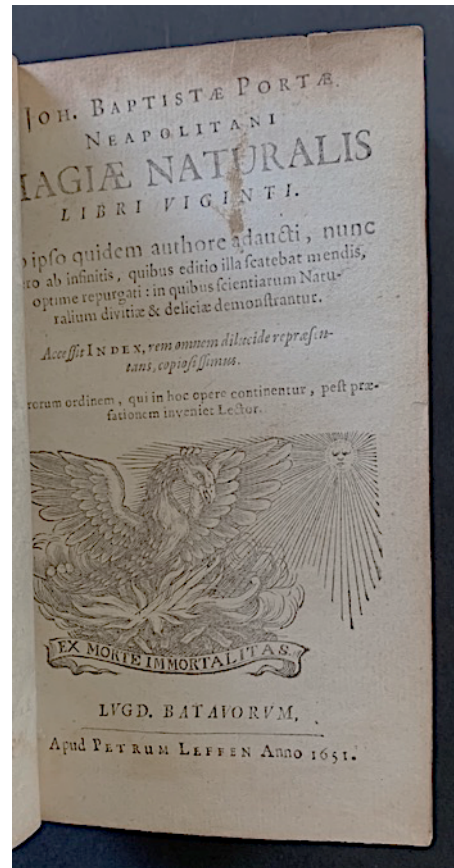 JOH. BAPTISTÆ PORTÆ
NEAPOLITANI
MAGIÆ NATURALIS
LIBRI VIGINTI.
ipſo quidem authore adaucti, nunc
ab infinitis, quibus editio illa ſcatebat mendis,
optime repurgati : in quibus ſcientiarum Natu-
ralium divitiæ & deliciæ demonſtrantur.
Acceſſit INDEX, rem omnem dilucide repræſen-
tans, copioſiſſimus.
rerum ordinem, qui in hoc opere continentur, poſt præ-
fationem inveniet Lector.
EX MORTE IMMORTALITAS.
LVGD. BATAVORVM,
Apud PETRUM LEFFEN Anno 1651.